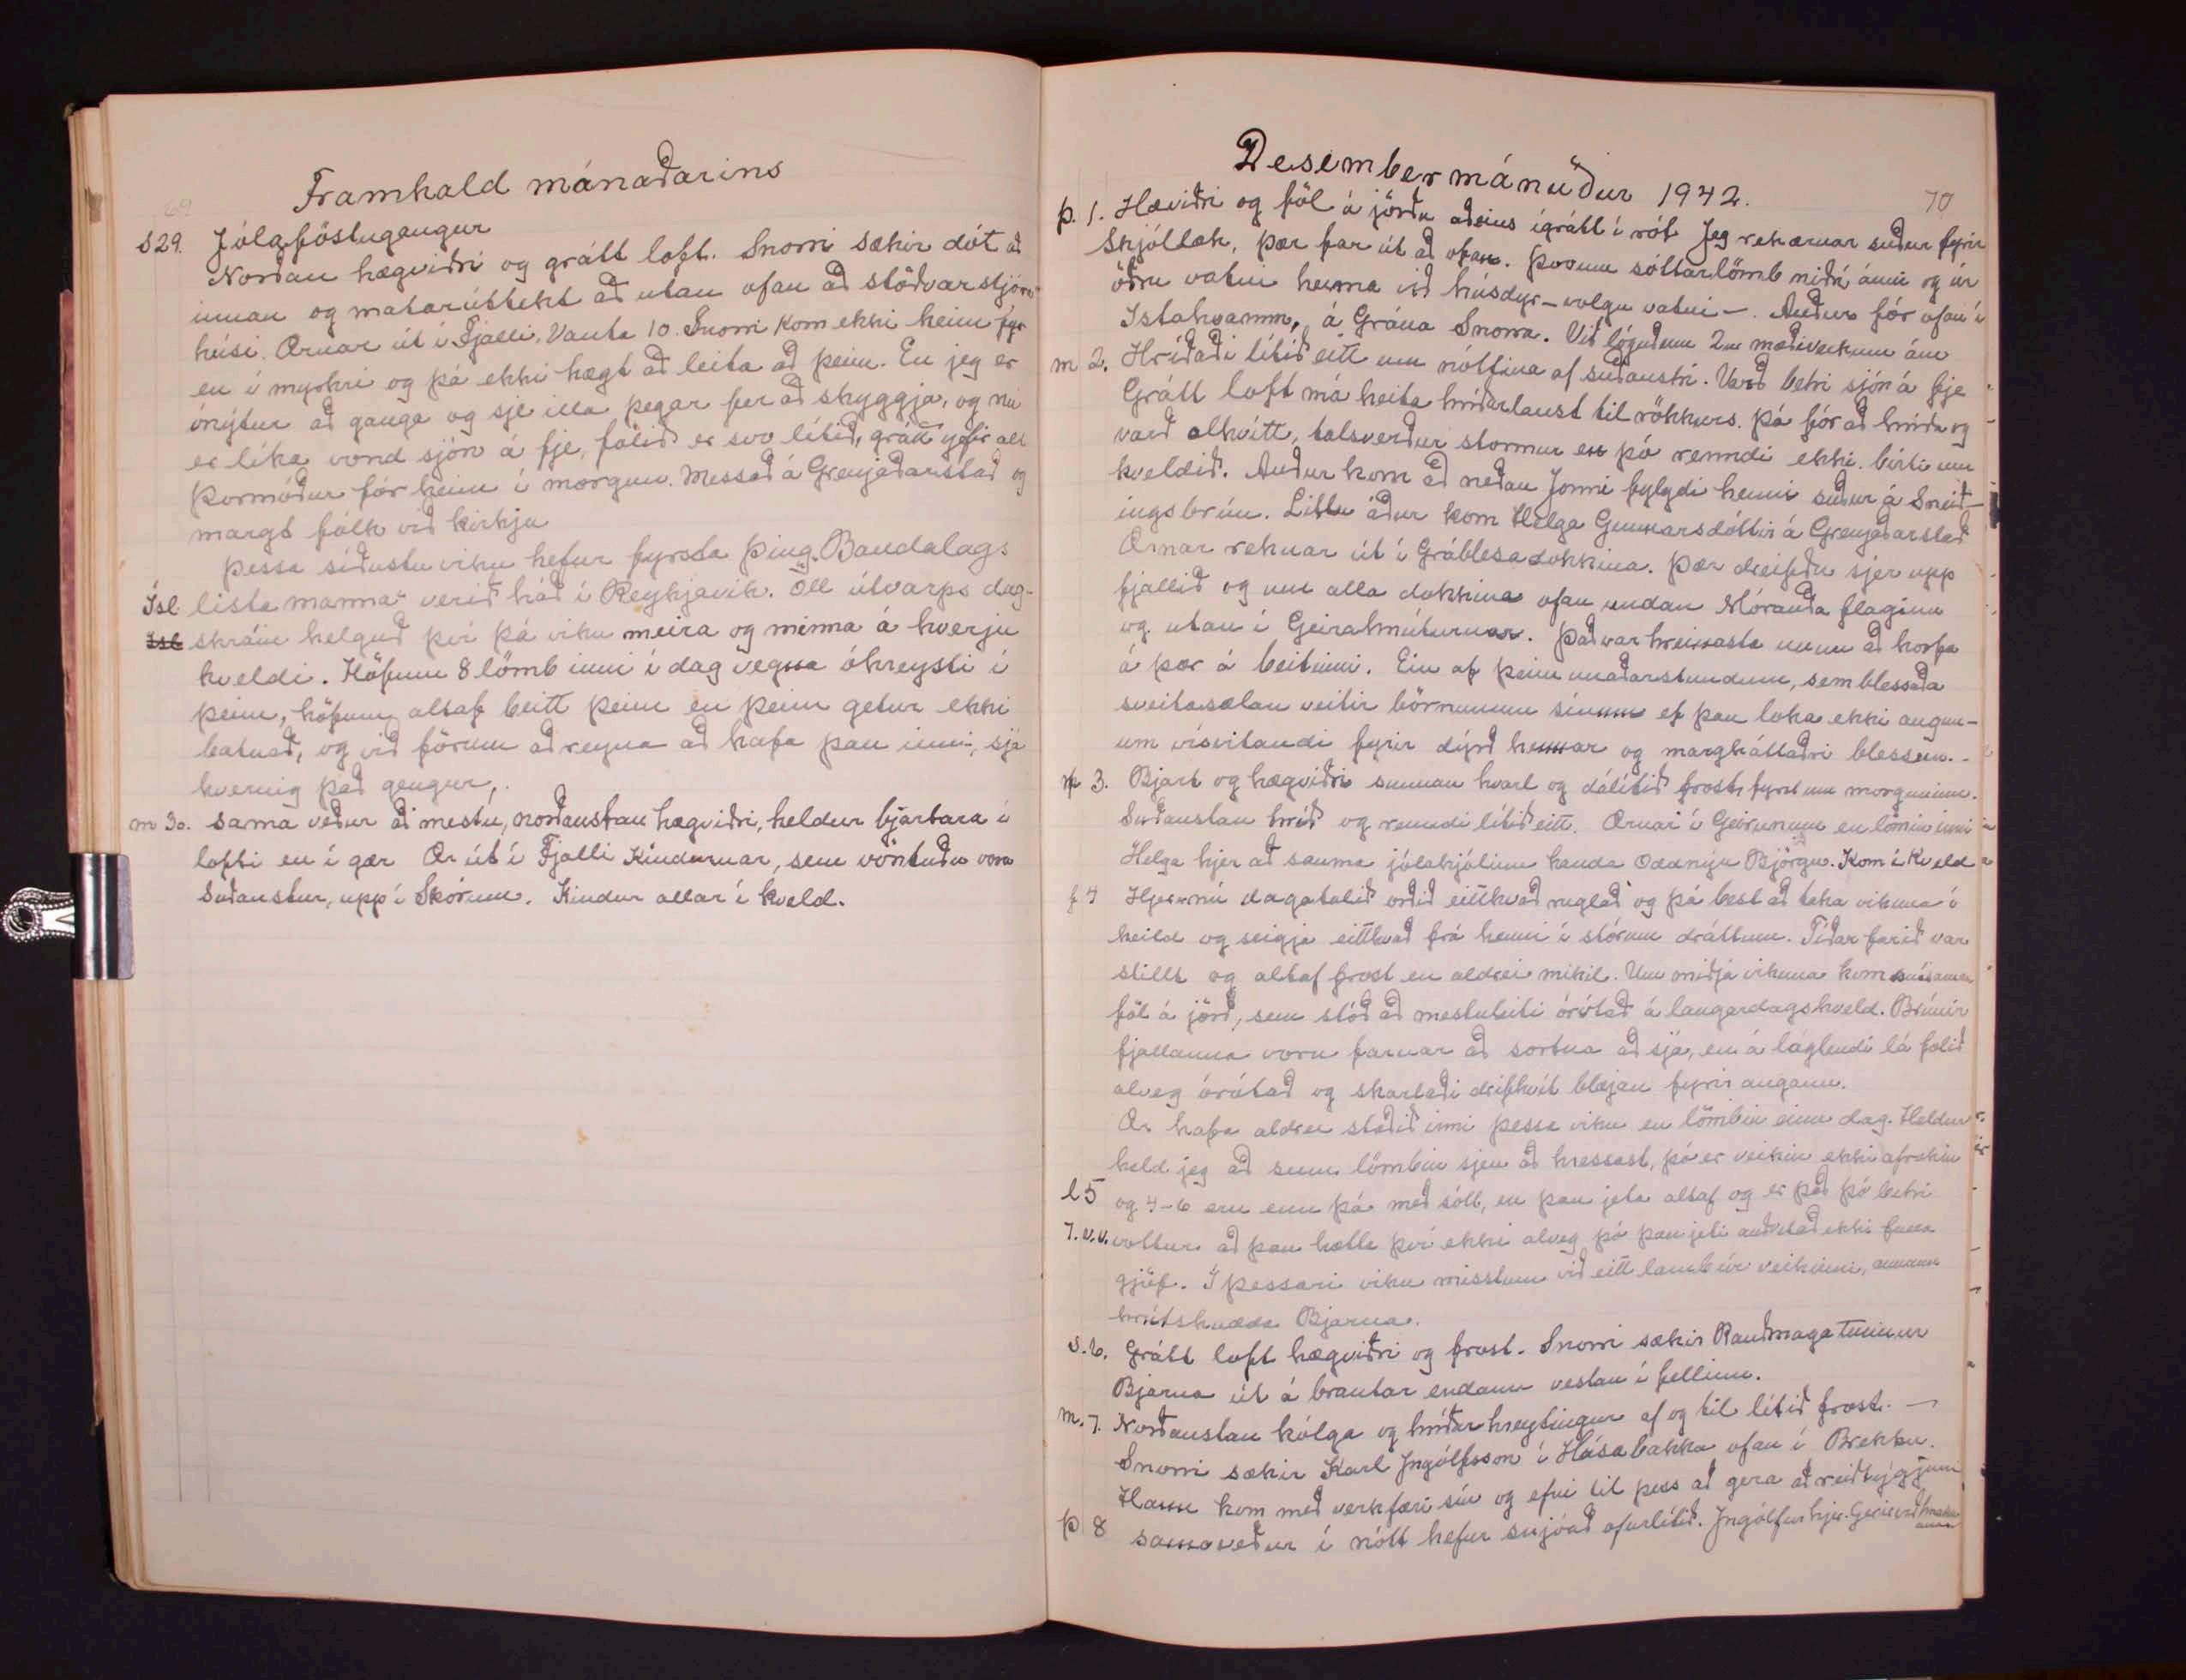 69
Framhald mánaðarins
S 29. Jólaföstugangur
Norðan hægviðri og grátt loft. Snorri sækir dót að
innan og matarúttekt að utan ofan að stöðvarstjóra
húsi. Ærnar út í Fjalli. Vanta 10. Snorri kom ekki heim fyr
en í myrkri og þá ekki hægt að leita að þeim. En jeg er
ónýtur að ganga og sje illa þegar fer að skyggja, og nú
er líka vond sjón á fje, fölið er svo lítið, grátt yfir alt
Þormóður fór heim í morgun. Messað á Grenjaðarstað og
margt fólk við kirkju
Þessa síðustu viku hefur fyrsta þing „Bandalags
Ísl. listamanna“ verið háð í Reykjavík. Öll útvarps dag-
Ísl skráin helguð því þá viku meira og minna á hverju
kveldi. Höfum 8 lömb inni í dag vegna óhreysti í
þeim, höfum altaf beitt þeim en þeim getur ekki
batnað, og við förum að reyna að hafa þau inni, sjá
hvernig það gengur.
m 30. Sama veður að mestu, norðaustan hægviðri, heldur bjartara í
lofti en í gær Ær út í Fjalli Kindurnar, sem vöntuðu voru
Suðaustur, upp í Skórum. Kindur allar í kveld.
70
Desembermánuður 1942.
þ. 1. Hæviðri og föl á jörðu aðeins ígrátt í rót Jeg rek ærnar suður fyrir
Skjóllæk, þær far út að ofan. Þvoum sóttarlömb niðrí ánni og úr
öðru vatni heima við húsdyr – volgu vatni –. Auður fór ofan í
Ístahvamm, á Grána Snorra. Við lóguðum 2m mæðiveikum ám
m 2. Hríðaði lítið eitt um nóttina af suðaustri. Varð betri sjón á fje
Grátt loft má heita hríðarlaust til rökkurs. Þá fór að hríða og
varð alhvítt, talsverður stormur en þó renndi ekki. birti um
kveldið. Auður kom að neðan Jonni fylgdi henni suður á Sneið-
ingsbrún. Litlu áður kom Helga Gunnarsdóttir á Grenjaðarstað
Ærnar reknar út í Gráblesadokkina. Þær dreifðu sjer upp
fjallið og um alla dokkina ofan undan Mórauða flaginu
og utan í Geirahnútunar. Það var hreinasta unun að horfa
á þær á beitinni. Ein af þeim unaðarstundum, sem blessaða
sveitasælan veitir börnunum sínum ef þau loka ekki augun-
um vísvitandi fyrir dýrð hennar og margháttaðri blessun.-
f 3. Bjart og hægviðri sunnan hvarl og dálítið frost fyrst um morguninn.
Suðaustan hríð og renndi lítið eitt. Ærnar í Geirunum en lömin inni
Helga hjer að sauma jólakjólinn handa Oddnýu Björgu. Kom í kveld
f 4 Hjer nú dagatalið orðið eitthvað ruglað og þá best að taka vikuna í
heild og seigja eitthvað frá henni í stórum dráttum. Tíðar farið var
stillt og altaf frost en aldrei mikil. Um miðja vikuna kom
föl á jörð, sem stóð að mestuleiti órótað á laugardagskveld. Brúnir
fjallanna voru farnar að sortna að sjá, en á láglendi lá folið
alveg órótað og skartaði drifhvít blæjan fyrir augum.
Ær hafa aldrei staðið inni þessa viku en lömbin einn dag. Heldur
held jeg að sum lömbin sjeu að hressast, þó er veikin ekki afrokin
l 5 og 4-6 eru enn þá með sótt, en þau jeta altaf og er það þó betri
7.v.v. vottur að þau hætta því ekki alveg þó þau jeti auðvitað ekki fulla
gjöf. Í þessari viku misstum við eitt lamb úr veikinni, annan
hrútskudda Bjarna.
s. 6. Grátt loft hægviðri og frost. Snorri sækir Rauðmaga tunnur
Bjarna út á brautar endann vestan í fellinu.
m. 7. Norðaustan kólga og hríðarhreytingur af og til lítið frost. –
Snorri sækir Karl Ingólfsson í Húsabakka ofan í Brekku.
Hann kom með verkfæri sín og efni til þess að gera að reiðtygjum
þ 8 sama veður í nótt hefur snjóað ofurlítið. Ingólfur hjer.